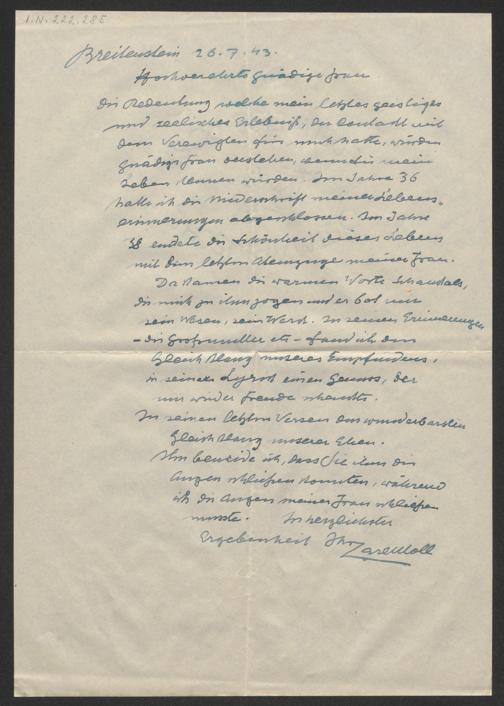 I.N. 222.285
Breitenstein 26.7.43.
Hochverehrte gnädige Frau
die Bedeutung welche mein letztes geistiges
und seelisches Erlebniß, der Contact mit
dem Verewigten für mich hatte, würden
gnädige Frau verstehen, wenn Sie mein
Leben kennen würden. Im Jahre 36
hatte ich die Niederschrift meiner Lebens-
erinnerungen abgeschlossen. Im Jahre
38 endete die Schönheit dieses Lebens
mit dem letzten Atemzuge meiner Frau.
Da kamen die warmen Worte Schaukals,
die mich zu ihm zogen und er bot mir
sein Wesen, sein Werk. In seinen Erinnerungen
- die Großmutter etc - fand ich den
Gleichklang unseres Empfindens,
in seiner Lyrik einen Genuss, der
mir wieder Freude schenkte.
In seinen letzten Versen den wunderbarsten
Gleichklang unserer Ehen.
Ihn beneide ich, dass Sie ihm die
Augen schließen konnten, während
ich die Augen meiner Frau schließen
musste. In herzlichster
Ergebenheit Ihr
Carl Moll